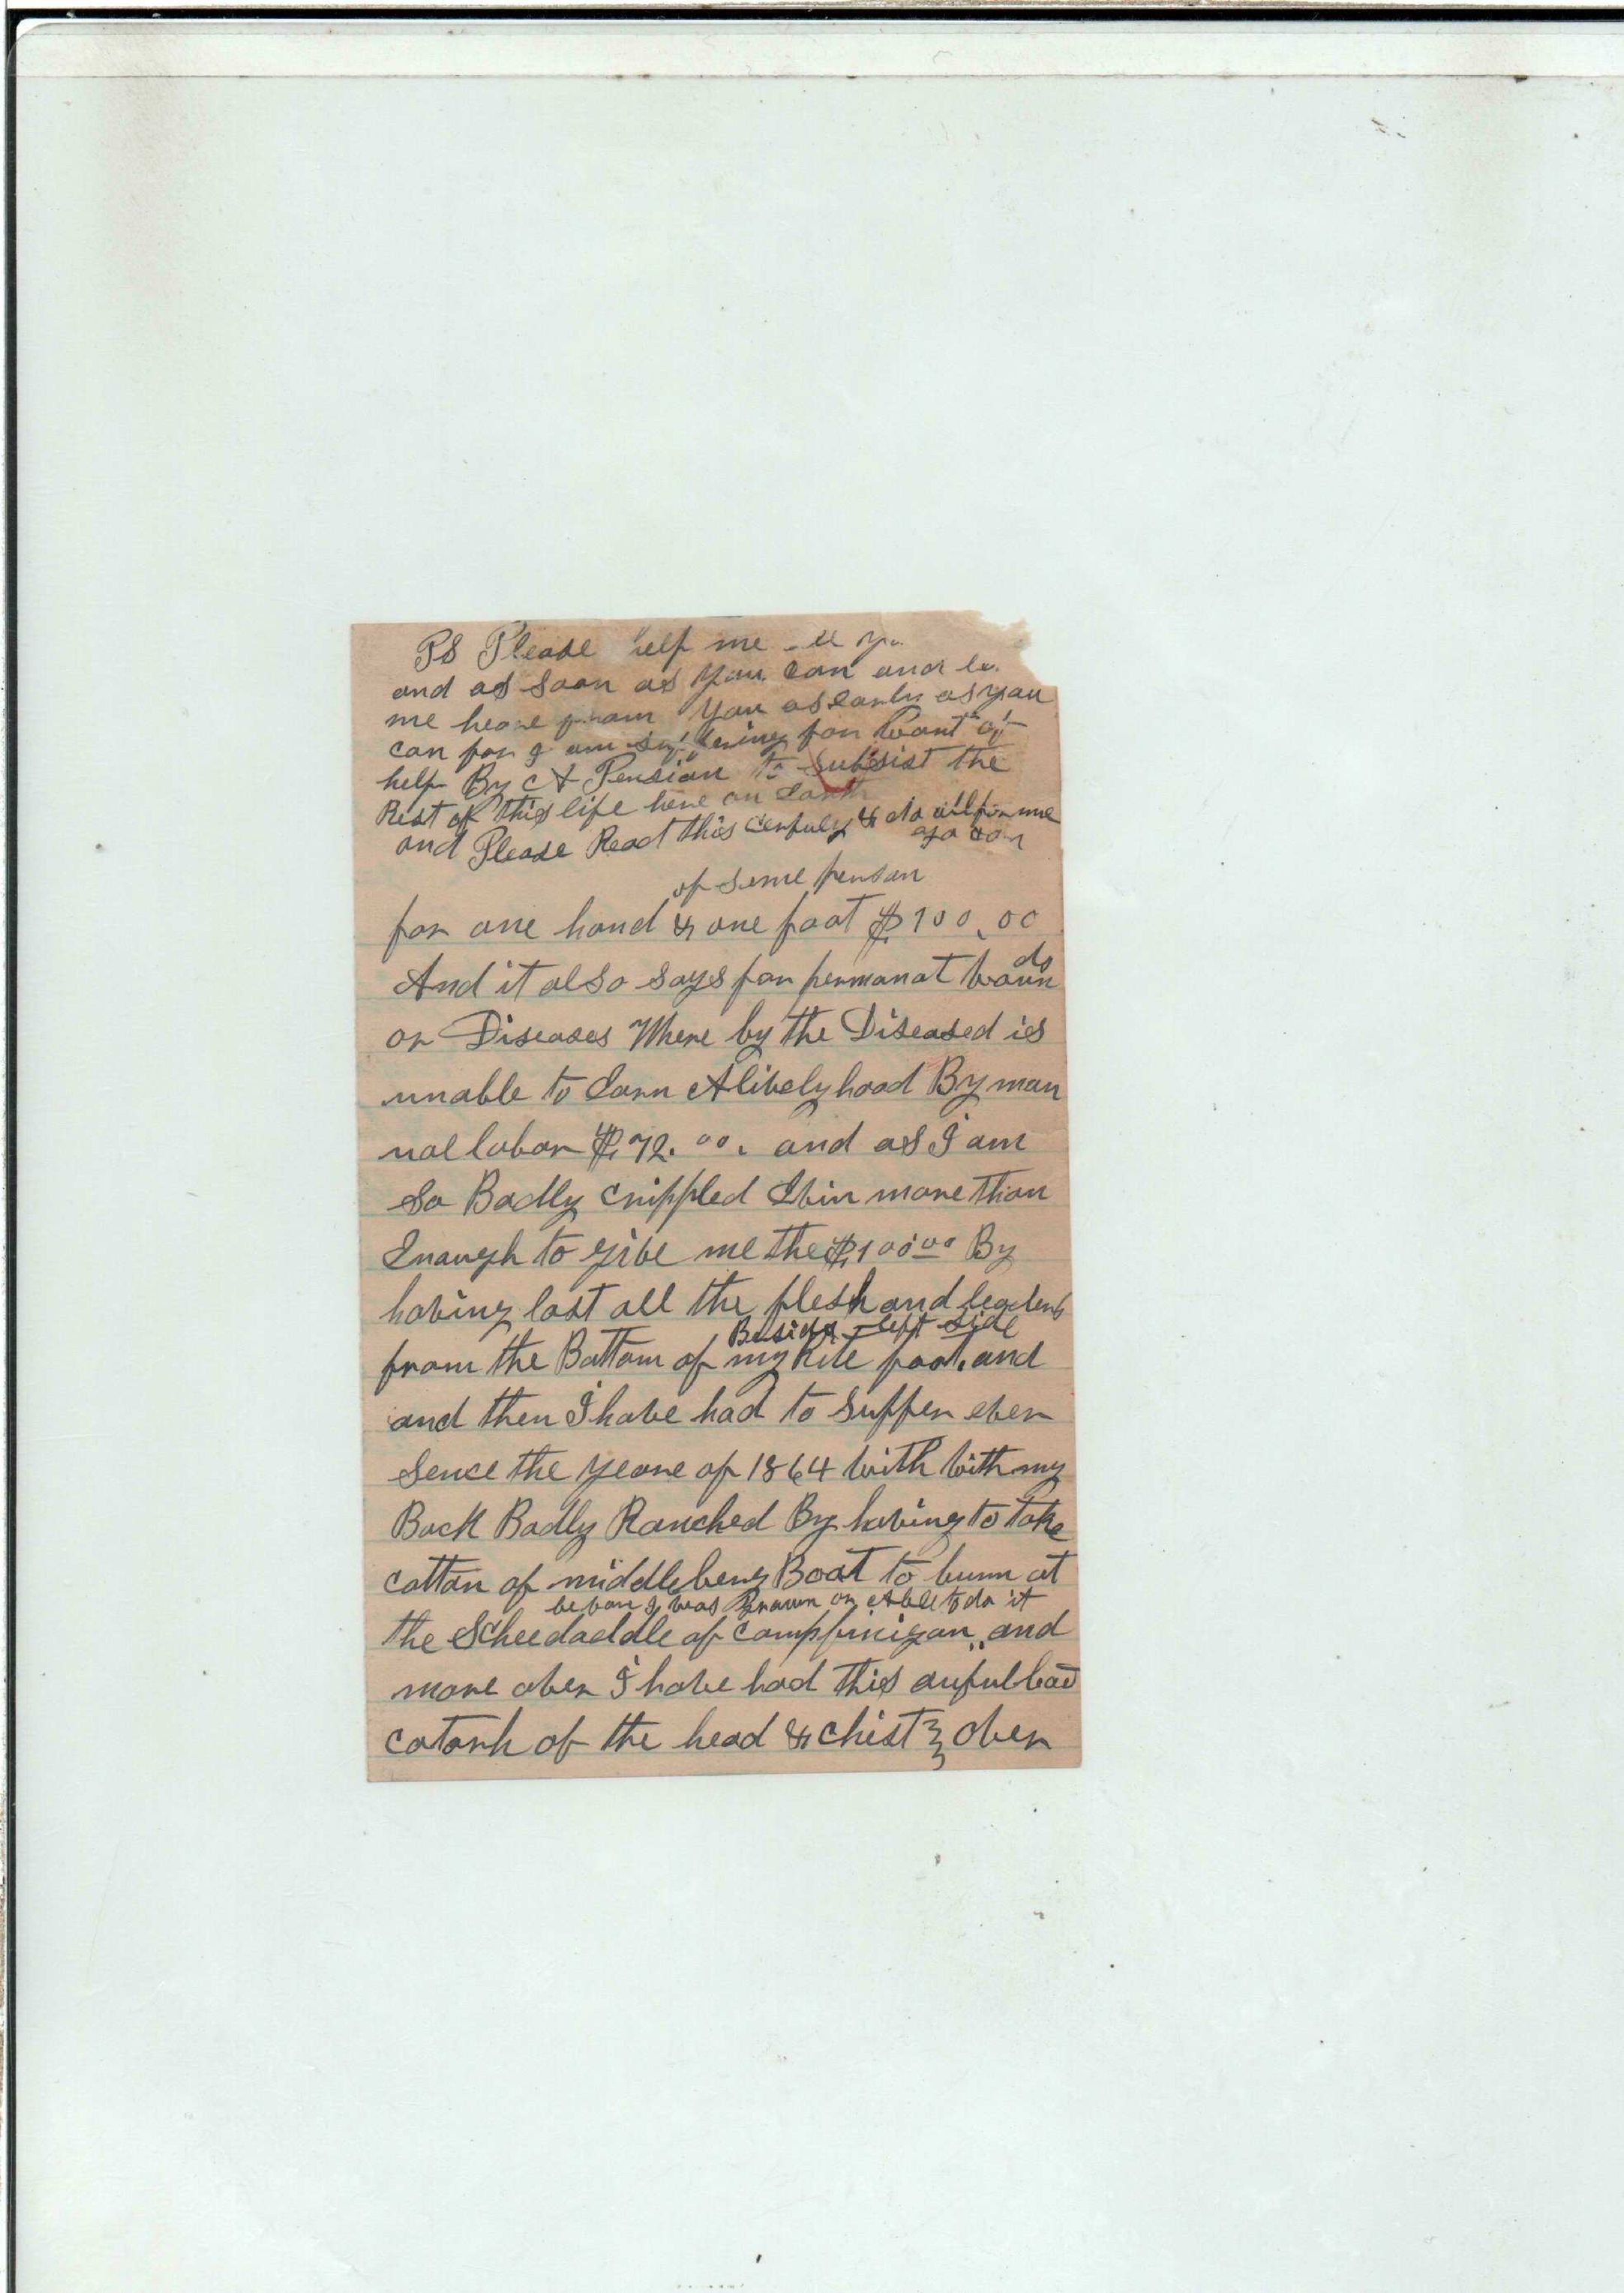 PS Please help me
and as soon as you can and
me heare from you as Early as you
can for I am suffering for Want of
help By A Pension to subsist the
Rest of this life here on Earth
and Please Read this cerfuly & do all for me
yo can
of seme person
for one hand & one foot $100.00
And it also says for permanat Woun
ds
or Diseases Where by the Diseased is
unable to Earn A livelyhood By man
ual labor $72.00. and as I am
So Badly crippled more than
Enaugh to give me the $100.00 By
having lost all the flesh and leaders
Besides left side
from the Bottom of my Rite foot. and
and then I have had to suffer ever
Sence the yeare of 1864 with with my
Back Badly Ranched By having to take
cotton of middleberg Boat to burn at
before I was Grown or Able to do it
the Scheedaddle of camp finigan, and
more over I have had this aufull bad
catarh of the head & chist over